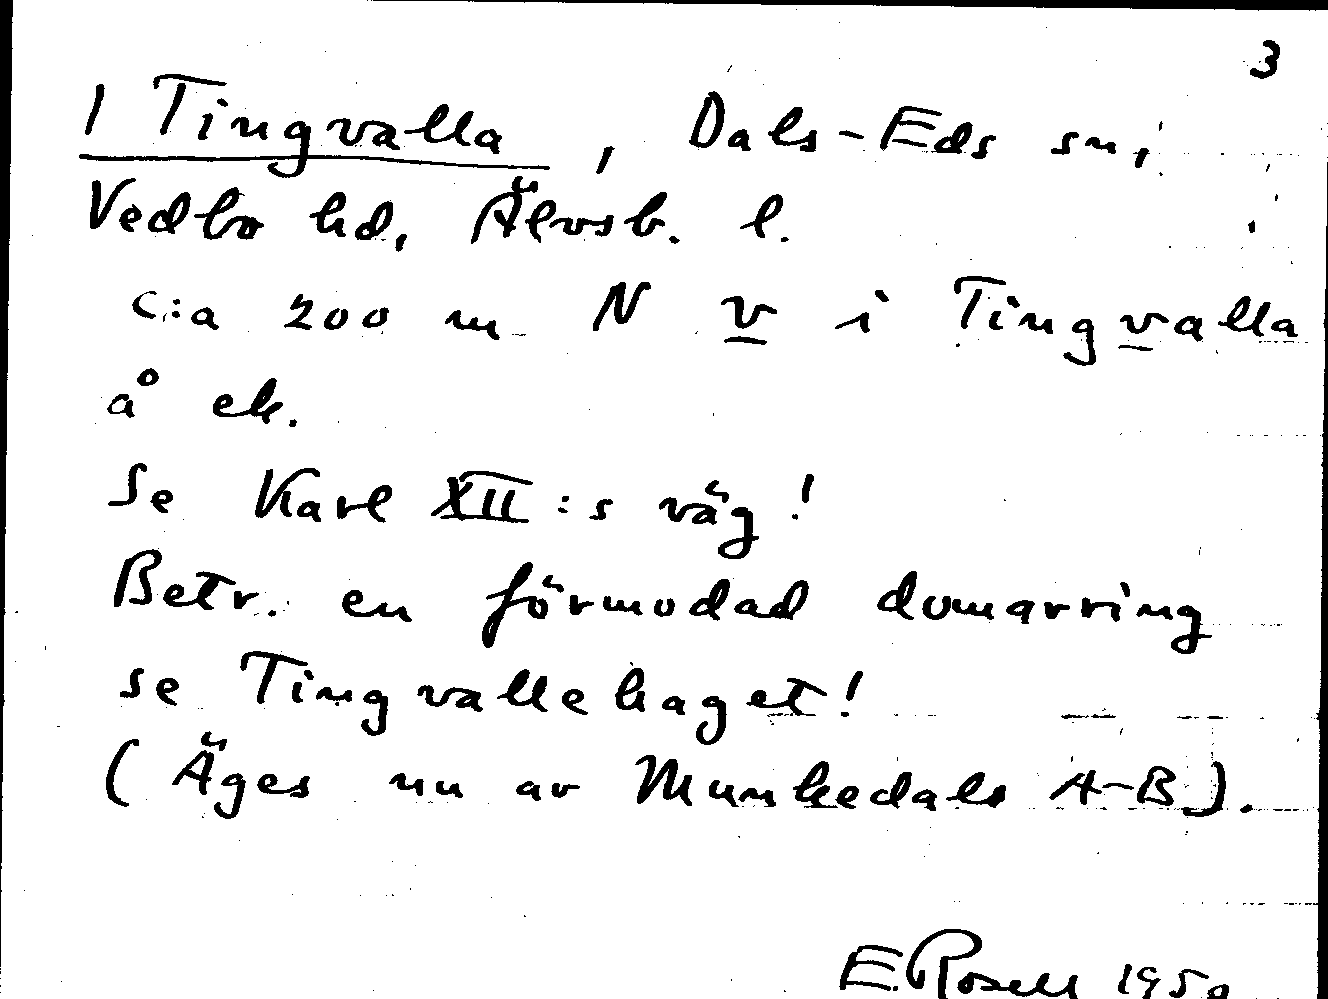 3
1 Tingvalla, Dals-Eds sn,
Vedbo hd, Älvsb. l.
c:a 200 m N v i Tingvalla
å ek.
Se Karl XII:s väg!
Betr. en förmodad domarring
se Tingvallehaget!
(Äges nu av Munkedals A-B).
E. Rosell 1950